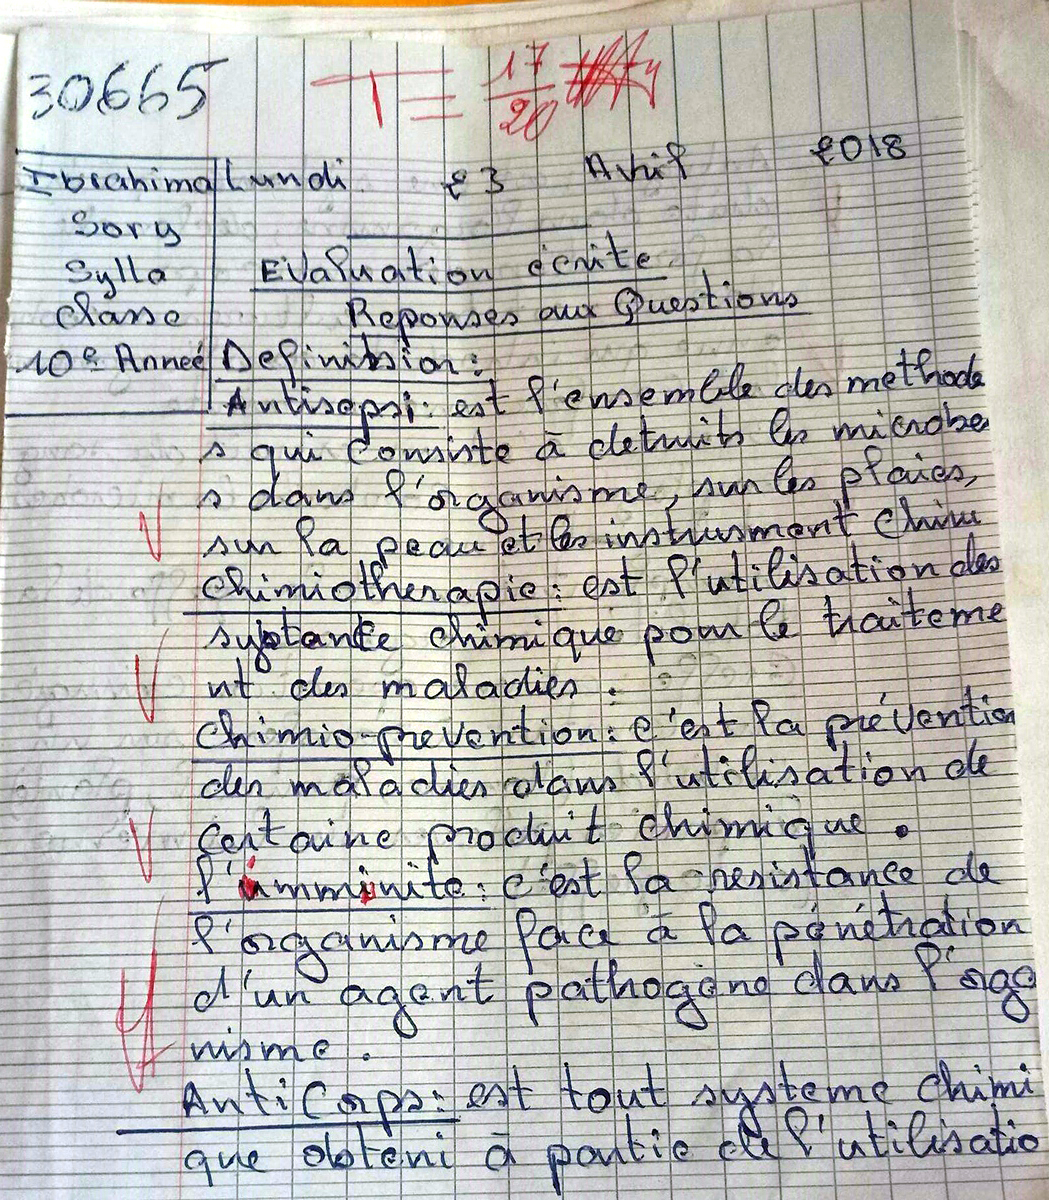 30665
T = 17/20
Ibrahima Lundi 23 Avril 2018
Sory
Sylla Evaluation écrite
Classe Reponses aux Questions
10e Anneé Definitsion:
Antisepsi: est l'ensemble des methode
s qui consiste à detruits les microbe
s dans l'organisme, sur les plaies,
sur la peau et les instrusment chim
Chimiotherapie: est l'utilisation des
substante chimique pour le traiteme
nt des maladies.
Chimio-prevention: c'est la prévention
des maladies dans l'utilisation de
certaine produit chimique.
l'imminite: c'est la resistance de
l'organisme face à la pénétration
d'un agent pathogène dans l'orga
nisme.
AntiCorps: est tout systeme chimi
que obteni à partie de l'utilisatio